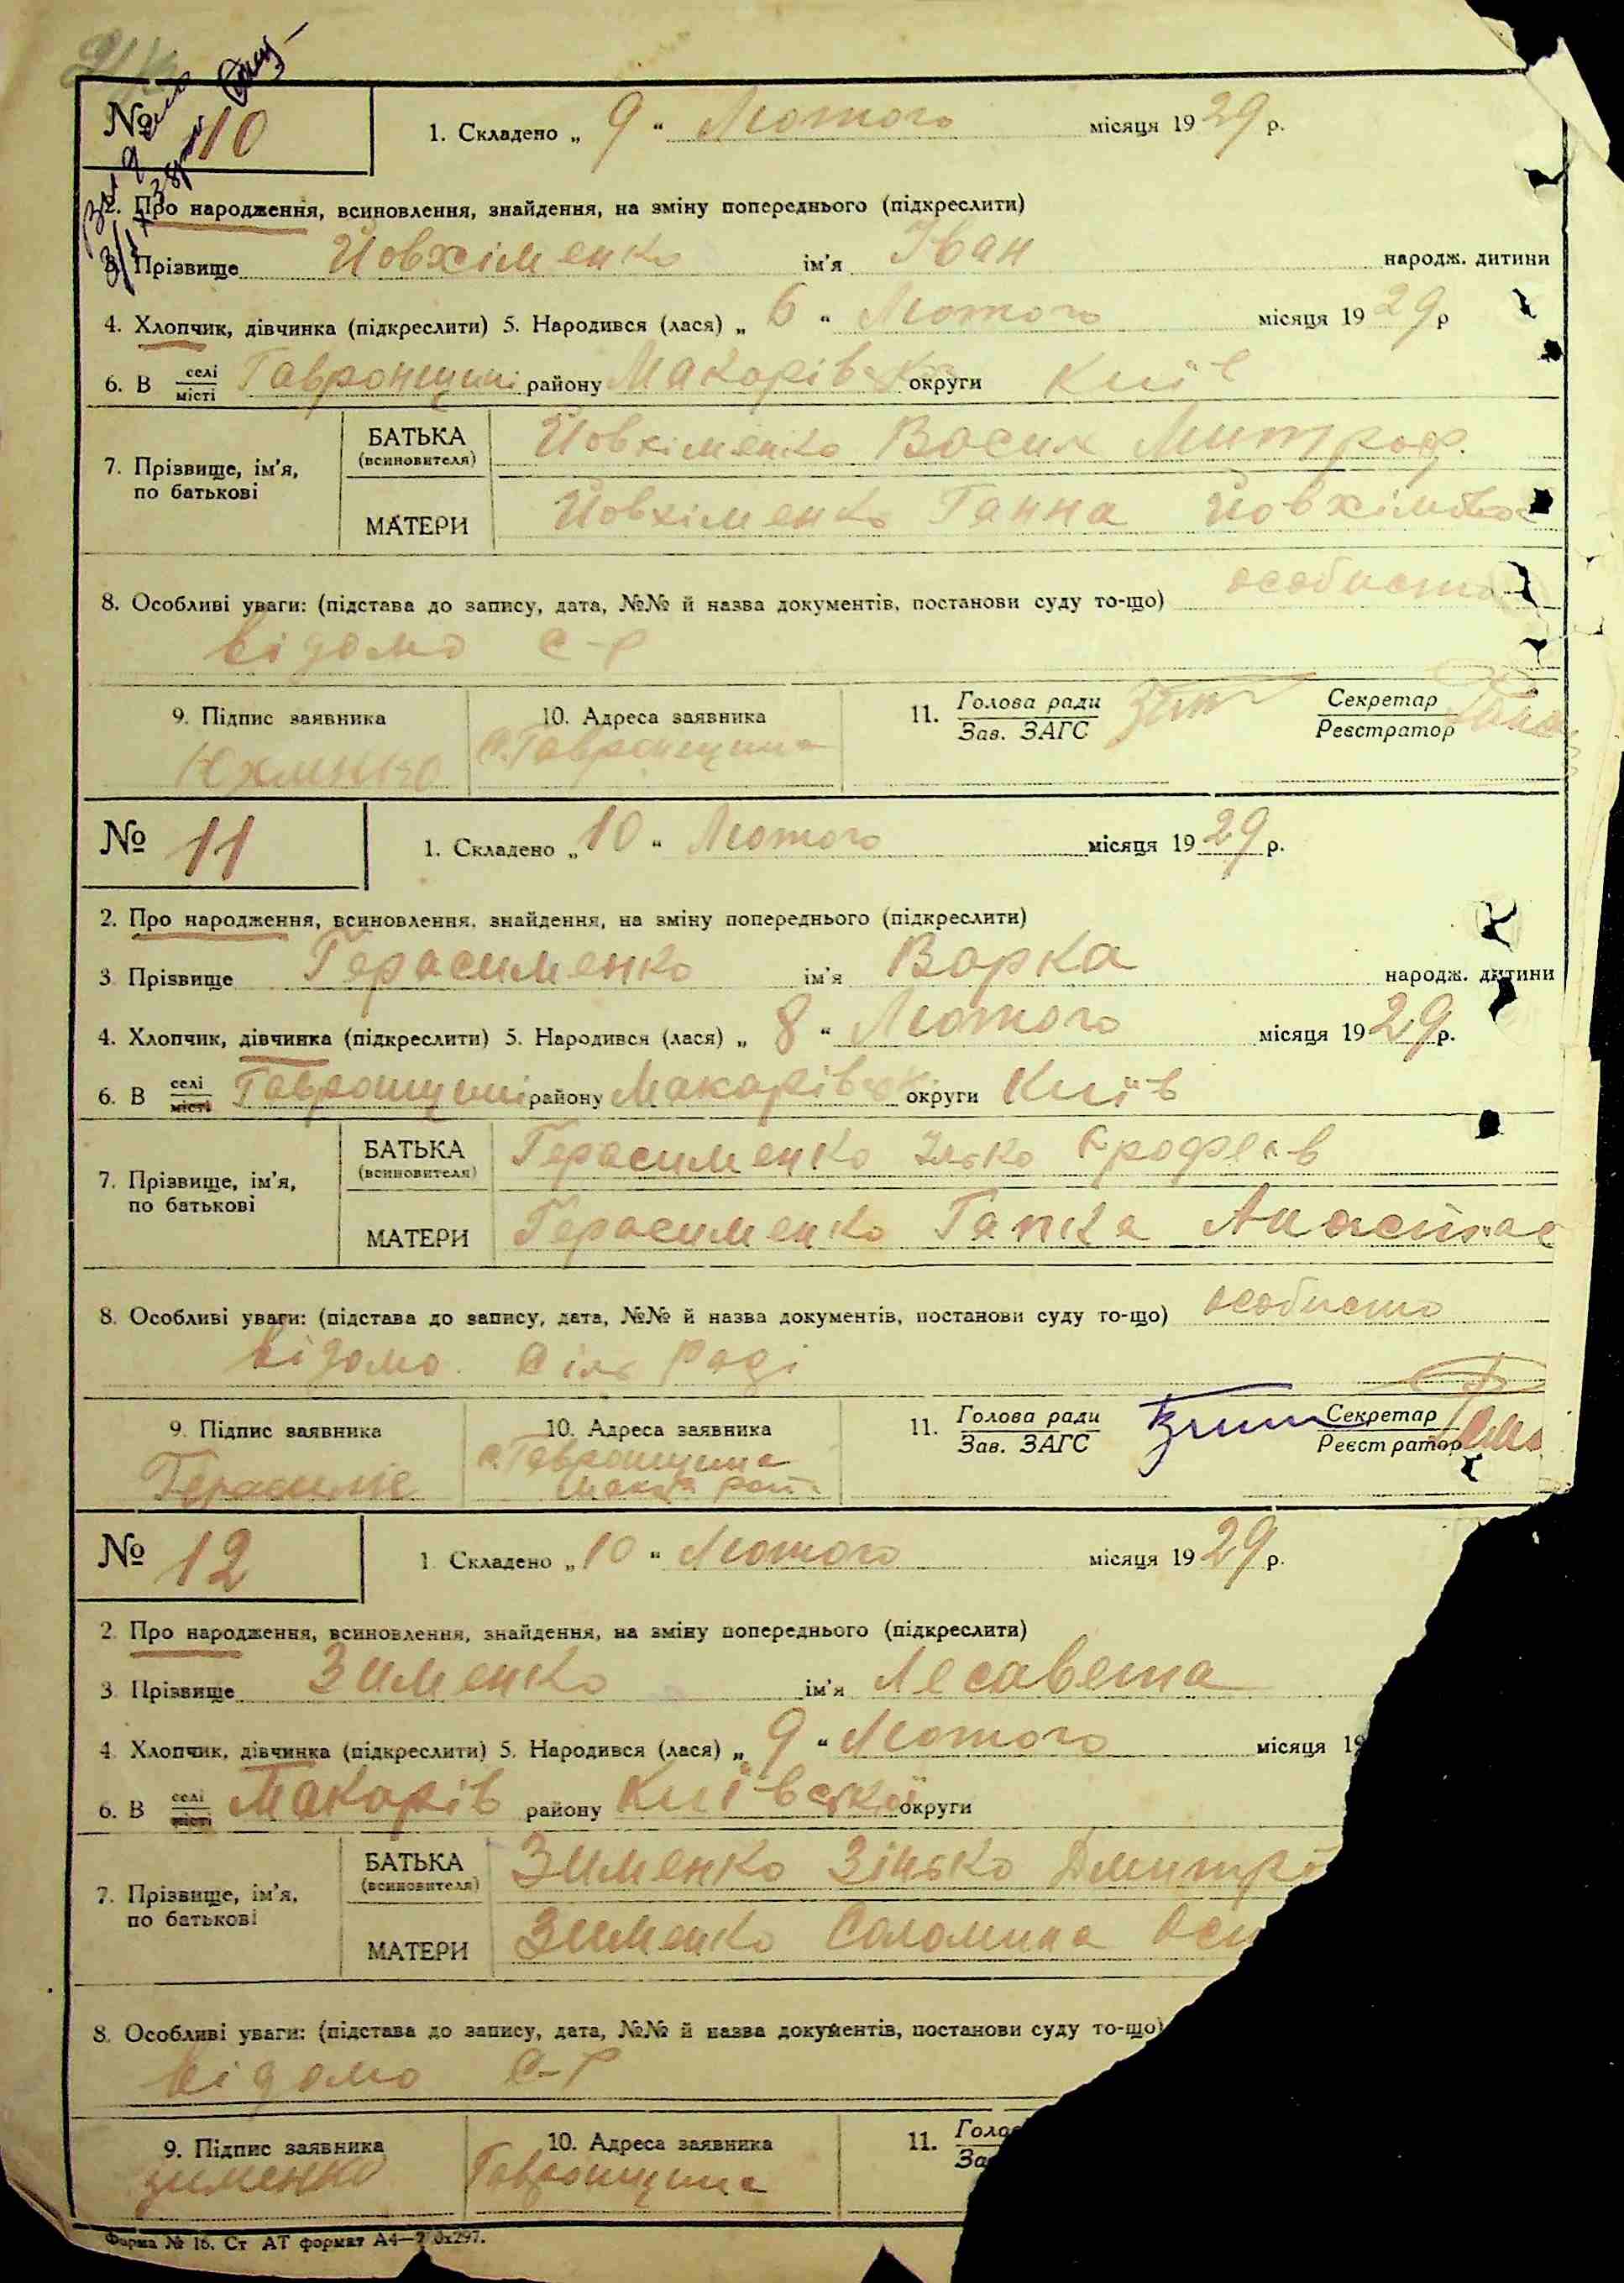 № 10
1. Складено „ 9 “ Лютого місяця 1929 р.
2. Про народження, всиновлення, знайдення, на зміну попереднього (підкреслити)
3. Прізвище Йовхіменко ім'я Іван народж. дитини
4. Хлопчик, дівчинка (підкреслити) 5. Народився (лася) „ 6 “ Лютого місяця 1929 р
6. В селі/місті Гавронщині району Макарівськ округи Київ
7. Прізвище, ім'я, по батькові
БАТЬКА (всиновителя) Йовхіменко Васил Митроф.
МАТЕРИ Йовхіменко Ганна
8. Особливі уваги: (підстава до запису, дата, №№ й назва документів, постанови суду то-що) особисто
відомо с-р
9. Підпис заявника 10. Адреса заявника 11. Голова ради/Зав. ЗАГС Секретар/Реєстратор
с. Гавронщина
№ 11
1. Складено „ 10 “ Лютого місяця 1929 р.
2. Про народження, всиновлення, знайдення, на зміну попереднього (підкреслити)
3. Прізвище Герасименко ім'я Варка народж. дитини
4. Хлопчик, дівчинка (підкреслити) 5. Народився (лася) „ 8 “ Лютого місяця 1929 р.
6. В селі/місті Гавронщині району Макарівськ округи Київ
7. Прізвище, ім'я, по батькові
БАТЬКА (всиновителя) Герасименко Ілько
МАТЕРИ Герасименко Гапка
8. Особливі уваги: (підстава до запису, дата, №№ й назва документів, постанови суду то-що) особисто
відомо Сіль Раді
9. Підпис заявника 10. Адреса заявника 11. Голова ради/Зав. ЗАГС Секретар/Реєстратор
с. Гавронщина
№ 12
1. Складено „ 10 “ Лютого місяця 1929 р.
2. Про народження, всиновлення, знайдення, на зміну попереднього (підкреслити)
3. Прізвище Зименко ім'я Лесавета
4. Хлопчик, дівчинка (підкреслити) 5. Народився (лася) „ 9 “ Лютого місяця 19
6. В селі/місті Макарів району Київської округи
7. Прізвище, ім'я, по батькові
БАТЬКА (всиновителя) Зименко Зінько Дмитрі
МАТЕРИ Зименко Соломина Оси
8. Особливі уваги: (підстава до запису, дата, №№ й назва документів, постанови суду то-що)
відомо С-Р
9. Підпис заявника 10. Адреса заявника 11. Голов/За
зименко Гавронщина
Форма № 16. Ст АТ формат А4—